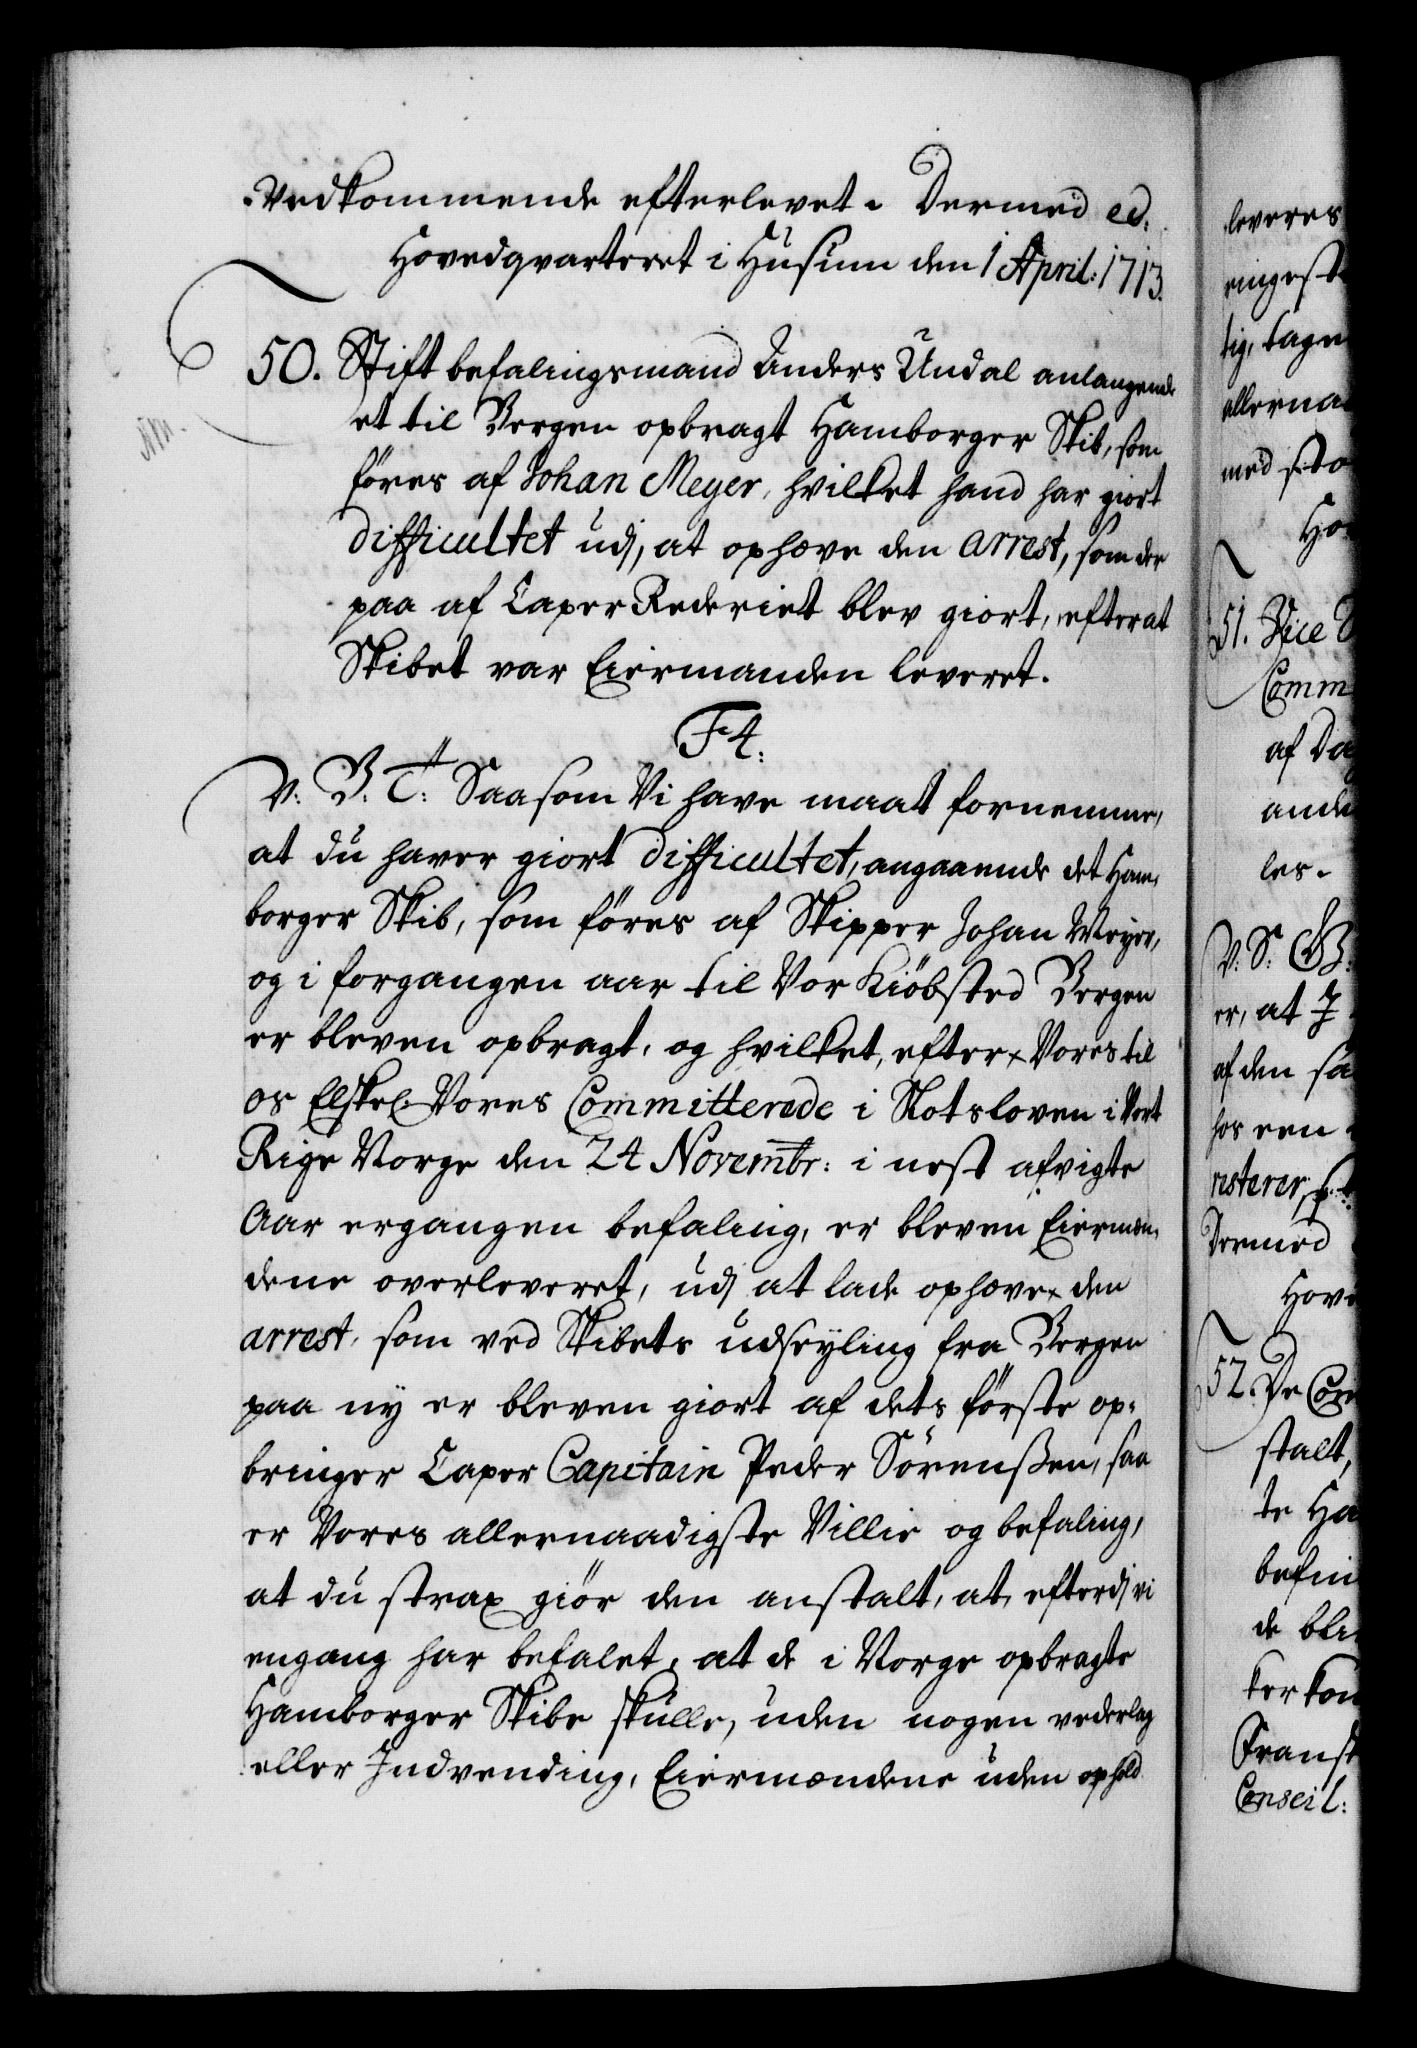 Vedkommende efterlevet. Dermed ec:
Hovedqvarteret i Husum den 1 April: 1713.
50. Stiftbefalingsmand Anders Undal anlangende
et til Bergen opbragt Hamborger Skib, som
föres af Johan Meyer, hvilket hand har giort
difficultet udj, at ophæve den arrest, som der
paa af Caper Rederiet blev giort, efter at
Skibet var Eiermanden leveret.
F4.
V: G: T: Saasom Vi have maat fornemme,
at du haver giort difficultet, angaaende det Ham-
borger Skib, som föres af Skipper Johan Meyer,
og i forgangen aar til Vor Kiöbsted Bergen
er bleven opbragt, og hvilket, efter Vores til
os Elskel: Vores Committerede i Slotsloven i Vort
Rige Norge den 24 Novembr: i nest afvigte
Aar ergangen befaling, er bleven Eiermæn-
dene overleveret, udj at lade ophæve den
arrest, som ved Skibets udseyling fra Bergen
paa ny er bleven giort af dets förste op-
bringer Caper Capitain Peder Sörenßen, saa
er Vores allernaadigste Villie og befaling,
at du strax giör den anstalt, at, efterdj vi
engang har befalet, at de i Norge opbragte
Hamborger Skibe skulle, uden nogen vederlag
eller Indvending, Eiermændene uden ophold
leveres
eingest
tig, tage
allerna
med s
Ho
51. Vice
Comm
af Da
ande
les.
V: S: G:
er, at J
af den sa
hos een
resterer,
Dermed
Hove
52. De Com
stalt,
te Ha
befin
de bli
ker kon
Fransk
Conseil: